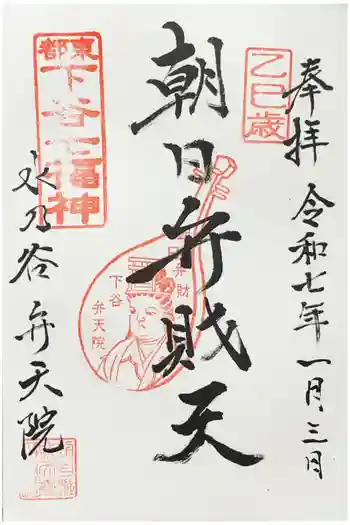 奉拝 令和七年一月三日
乙巳歳
朝日弁財天
弁財
下谷
弁天院
東都
下谷七福神
水乃谷弁天院